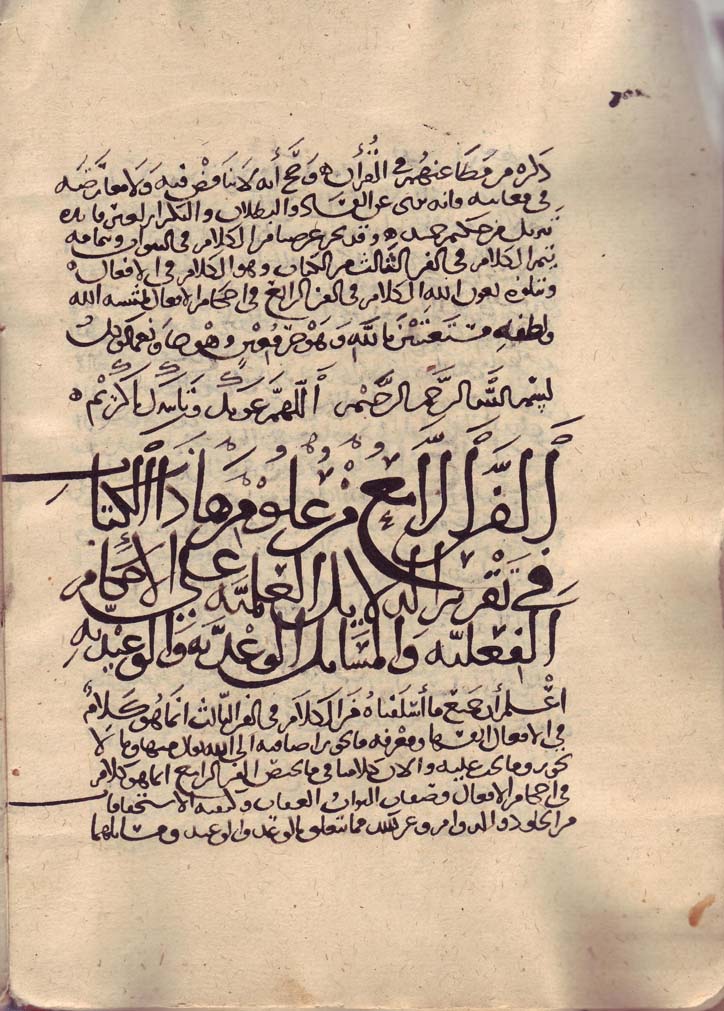 ذكره من مطاعنهم في القرآن وصح أنه لا تناقض فيه ولا معارضة
في معانيه وانه بري عن الفساد والبطلان والتكرار لغير فائدة
تنزيل من حكيم حميد وقد نجز غرضنا من الكلام في النبوات وبتمامه
يتم الكلام في الفن الثالث من الكتاب وهو الكلام في الافعال
ويتلوه بعون الله الكلام في الفن الرابع في احكام الافعال بمشيئة الله
ولطفه مستعينين بالله وهو خير معين وهو حسبنا ونعم الوكيل
بسم الله الرحمن الرحيم اللهم عونك وتاييدك يا كريم
الفن الرابع من علوم هاذا الكتاب
في تقرير الدلايل العلمية على الاحكام
الفعلية والمسايل الوعدية والوعيدية
اعلم أن جميع ما أسلفناه من الكلام في الفن الثالث انما هو كلام
في الافعال انفسها ومعرفة ما يجوز اضافته الى الله تعالى منها وما لا
يجوز وما يجب عليه والان كلامنا في ما يخص الفن الرابع انما هو كلام
في احكام الافعال وصفات الثواب والعقاب وكيفية الاستحقاقات
من الخلود والدوام وغير ذلك مما يتعلق بالوعد والوعيد ومسايلهما